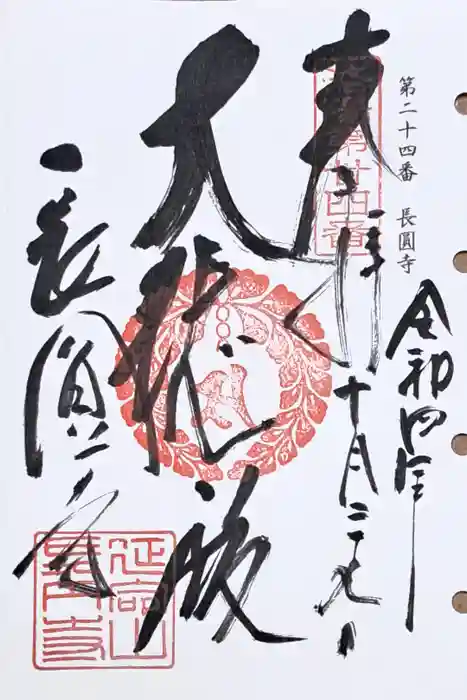 第二十四番 長圓寺
令和四年
十月二九日
奉拝
第廿四番
大 殿
長圓寺
延命山
長円寺